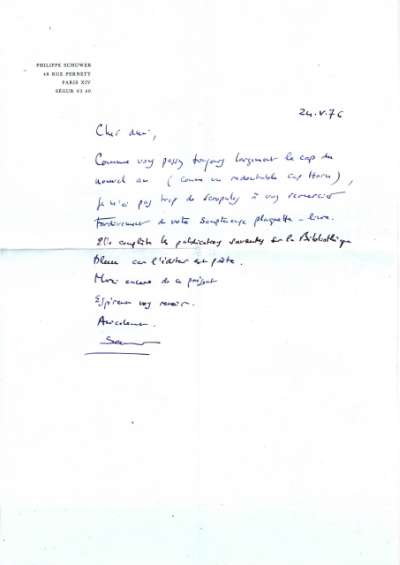 PHILIPPE SCHUWER
48 RUE PERNETY
PARIS XIV
SÉGUR 03 40
24.V.76
Cher ami,
Comme vous passez toujours largement le cap du
nouvel an (comme un redoutable cap Horn),
je n'ai pas trop de scrupules à vous remercier
tardivement de votre somptueuse plaquette-livre.
Elle complète les publications savantes sur la Bibliothèque
Bleue car l'éditeur est poète.
Merci encore de ce présent
Espérons vous revoir.
Amicalement